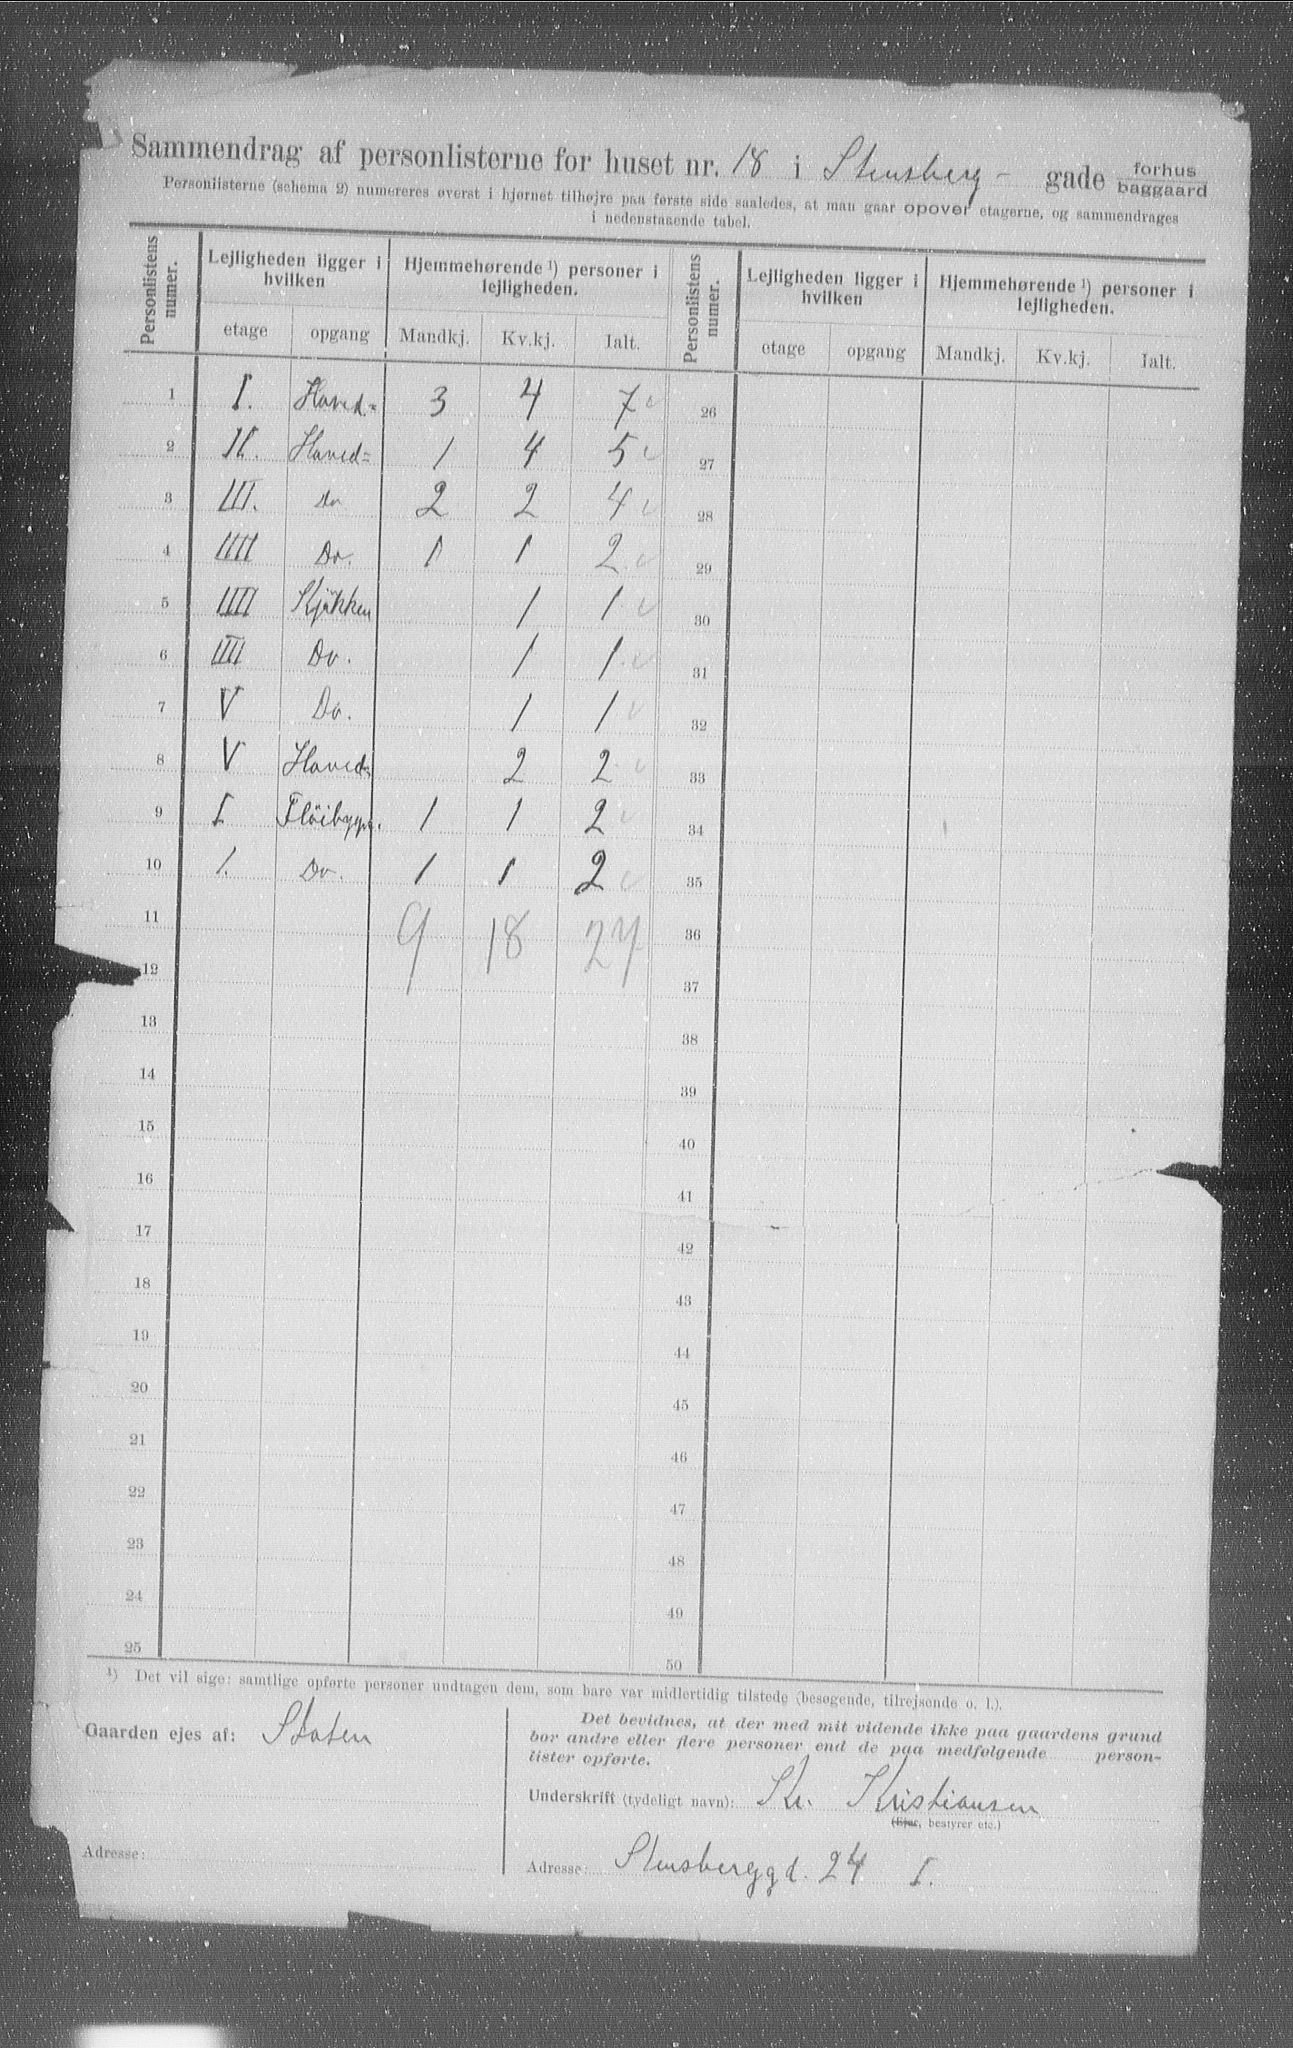 Sammendrag af personlisterne for huset nr. 18 i Stensberg- gade forhus baggaard
Personlisterne (schema 2) numereres øverst i hjørnet tilhøjre paa første side saaledes, at man gaar opover etagerne, og sammendrages
i nedenstaaende tabel.
Personlistens numer. Lejligheden ligger i hvilken Hjemmehørende ¹) personer i lejligheden. Personlistens numer. Lejligheden ligger i hvilken Hjemmehørende ¹) personer i lejligheden.
etage opgang Mandkj. Kv.kj. Ialt. etage opgang Mandkj. Kv.kj. Ialt.
1 I. Hoved= 3 4 7 26
2 II. Hoved= 1 4 5 27
3 III. Do 2 2 4 28
4 IIII Do. 1 1 2 29
5 IIII Kjøkken 1 1 30
6 IIII Do. 1 1 31
7 V Do. 1 1 32
8 V Hoved= 2 2 33
9 I Fløibygn. 1 1 2 34
10 I. Do. 1 1 2 35
11 9 18 27 36
12 37
13 38
14 39
15 40
16 41
17 42
18 43
19 44
20 45
21 46
22 47
23 48
24 49
25 50
¹) Det vil sige: samtlige opførte personer undtagen dem, som bare var midlertidig tilstede (besøgende, tilrejsende o. l.).
Gaarden ejes af: Staten
Adresse:
Det bevidnes, at der med mit vidende ikke paa gaardens grund
bor andre eller flere personer end de paa medfølgende person-
lister opførte.
Underskrift (tydeligt navn): Kr. Kristiansen
(Ejer, bestyrer etc.)
Adresse: Stensberggd. 24 I.